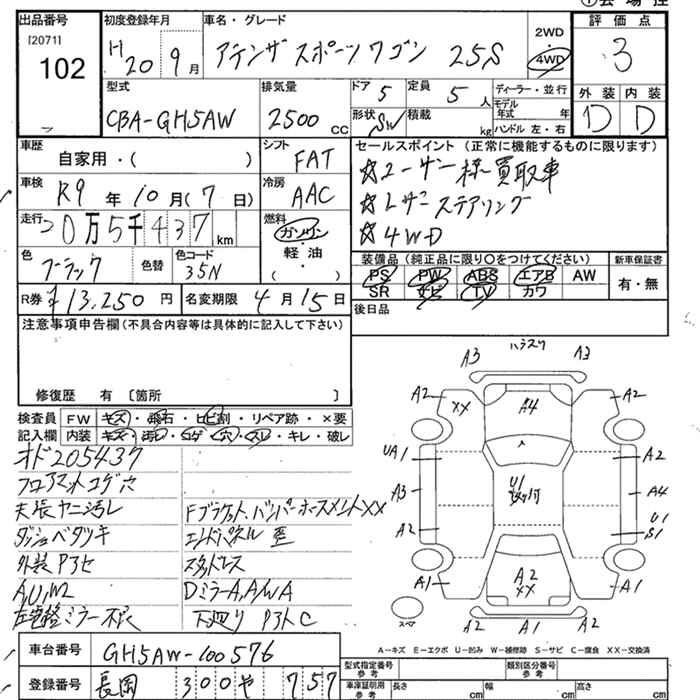 出品番号 初度登録年月 車名・グレード 2WD 評価点
[2071] H20 9月 アテンザスポーツワゴン 25S 4WD 3
102 型式 排気量 ドア 5 定員 5人 ディーラー・並行 外装 内装
CBA-GH5AW 2500cc 形状 SW 積載 kg モデル年式 年 ハンドル 左・右 D D
車歴 自家用・( ) シフト FAT セールスポイント(正常に機能するものに限ります)
車検 R9年10月(7日) 冷房 AAC ☆ユーザー様買取車
☆レザーステアリング
走行 20万5千437km 燃料 ガソリン・軽油・( ) ☆4WD
色 ブラック 色替 色コード 35N 装備品(純正品に限り○をつけてください) 新車保証書
PS PW ABS エアB AW 有・無
R券 ¥13,250円 名変期限 4月15日 SR ナビ TV カワ
注意事項申告欄(不具合内容等は具体的に記入して下さい) 後日品
修復歴 有〔箇所 〕
検査員 FW キズ・飛石・ヒビ割・リペア跡・×要
記入欄 内装 キズ・汚レ・コゲ・穴・スレ・キレ・破レ
オド205437
フロアマットコゲ穴
天張ヤニ汚レ
Fブラケット、バンパーホースメントXX
ダッシュベタツキ
エンドパネル歪
外装Pアセ
スタッドレス
A,U,W2
DミラーA,AWA
左電格ミラー不良
下廻りPアトC
A3 A3
A2 XX A4 A2
UA1 A2
U1
A3 A4
A2 U1
S1
A1 A2 XX A1
スペア A2 A1 A2
A-キズ E-エクボ U-凹み W-補修跡 S-サビ C-腐食 XX-交換済
車台番号 GH5AW-100576
型式指定番号 参考 類別区分番号 参考
登録番号 長岡 300 や 757
車庫証明用 参考 長さ cm 幅 cm 高さ cm